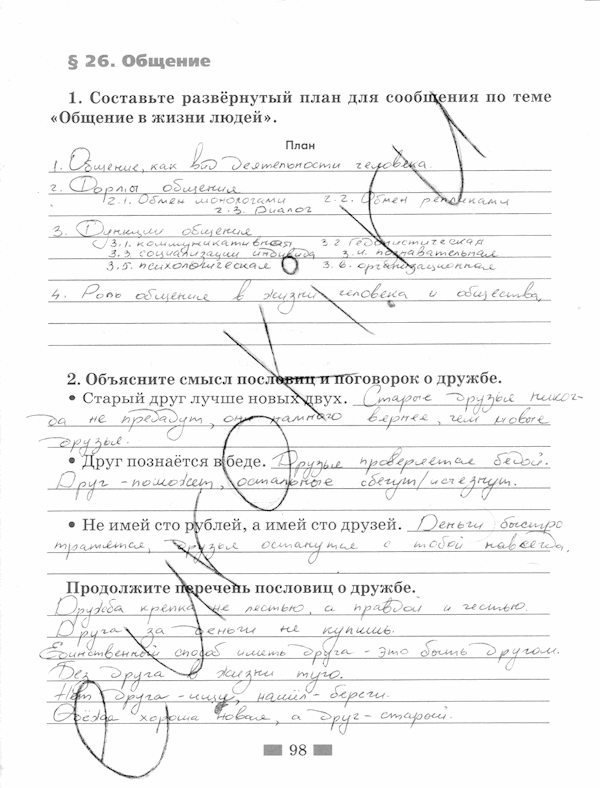 § 26. Общение
1. Составьте развёрнутый план для сообщения по теме
«Общение в жизни людей».
План
1. Общение, как вид деятельности человека.
2. Формы общения
2.1. Обмен монологами 2.2. Обмен репликами
2.3. Диалог
3. Функции общения
3.1. коммуникативная 3.2 Гедонистическая
3.3. социализации индивида 3.4. познавательная
3.5. психологическая 3.6. организационная
4. Роль общения в жизни человека и общества.
2. Объясните смысл пословиц и поговорок о дружбе.
• Старый друг лучше новых двух. Старые друзья никог-
да не предадут, они намного вернее, чем новые
друзья.
• Друг познаётся в беде. Друзья проверяется бедой.
Друг - поможет, остальные сбегут/исчезнут.
• Не имей сто рублей, а имей сто друзей. Деньги быстро
тратятся, друзья останутся с тобой навсегда.
Продолжите перечень пословиц о дружбе.
Дружба крепка не лестью, а правдой и честью.
Друга за деньги не купишь.
Единственный способ иметь друга - это быть другом.
Без друга в жизни туго.
Нет друга - ищи, нашёл - береги.
Одёжа хороша новая, а друг - старый.
98